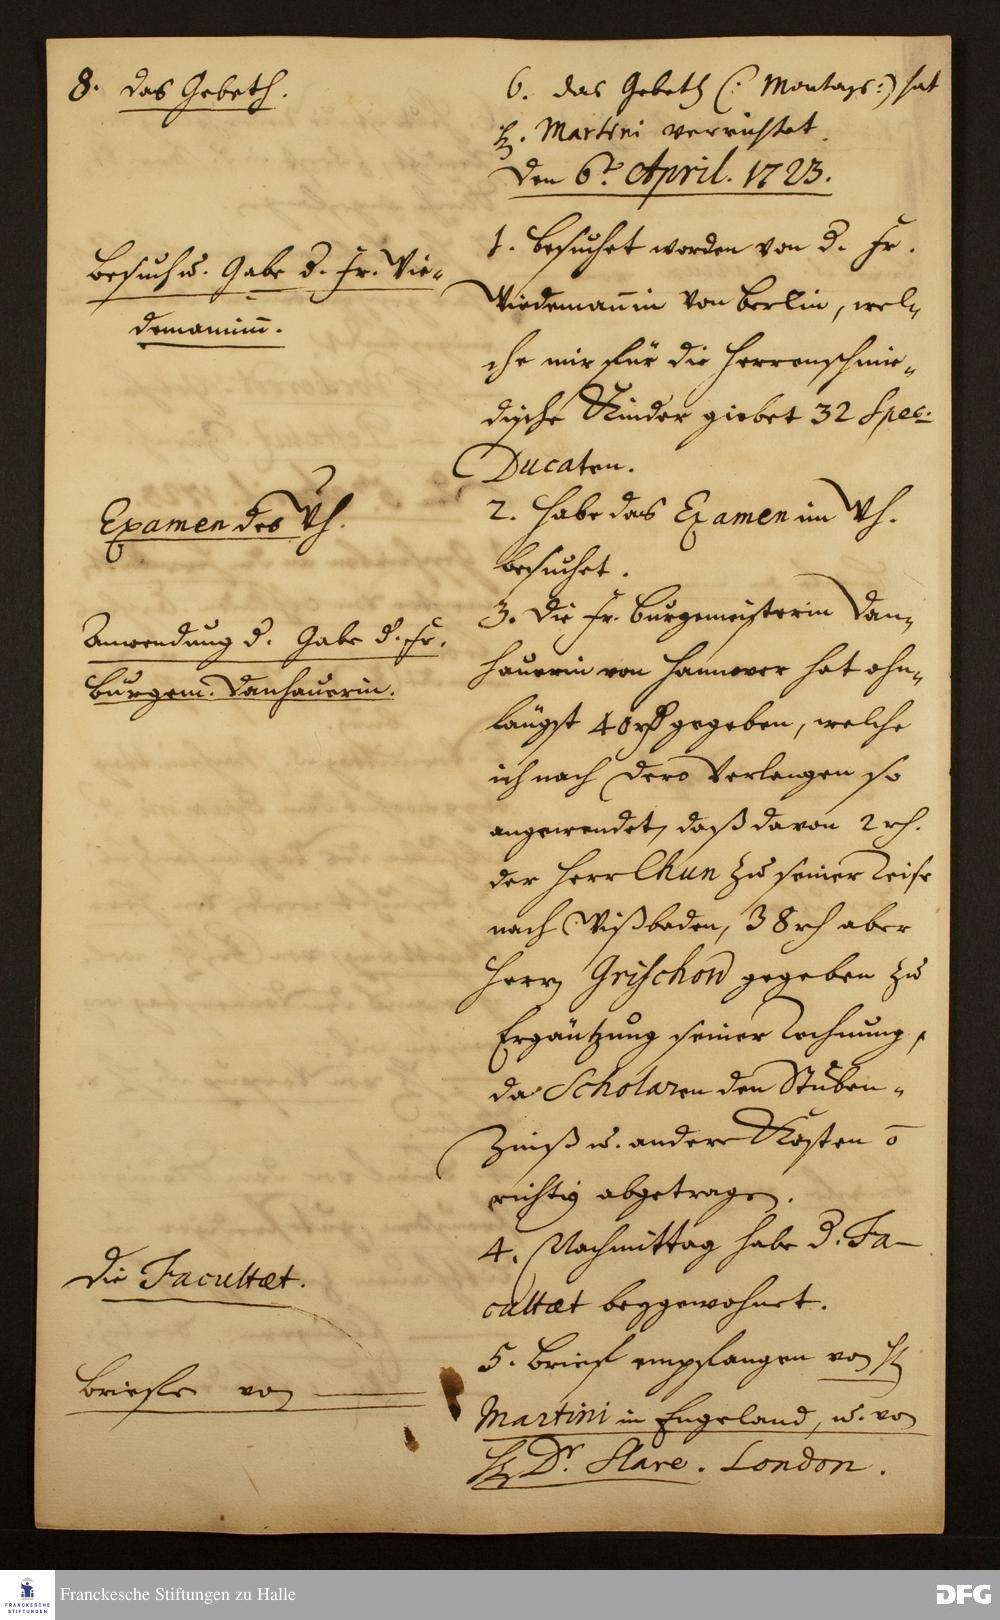 8. das Gebeth.
6. das Gebeth (: Montags :) hat
H. Martini verrichtet.
den 6t. April. 1723.
Besuch u. Gabe d. Fr. Wie-
demannin.
1. besuchet worden von d. Fr.
Wiedemannin von Berlin, wel-
che mir für die Herrenschmie-
dische Kinder giebet 32 Spec.
Ducaten.
Examen des
2. Habe das Examen im
besuchet.
Anwendung d. Gabe d. Fr.
Burgem. Danhauerin.
3. Die Fr. Burgemeisterin Dan-
hauerin von Hannover hat ohn-
längst 40 gegeben, welche
ich nach dero Verlangen so
angewendet, daß davon 2 rh.
der Herr Chun zu seiner Reise
nach Wißbaden, 38 rh aber
Herrn Grischow gegeben zu
Ergäntzung seiner Rechnung,
da Scholaren den Stuben-
Zinß u. andere Kosten õ
richtig abgetragen.
Die Facultæt.
4. Nachmittag habe d. Fa-
cultæt beygewohnet.
Briefe von
5. Brief empfangen von H
Martini in Engeland, u. von
H Dr. Slare. London.
Franckesche Stiftungen zu Halle
FRANCKESCHE
STIFTUNGEN
DFG